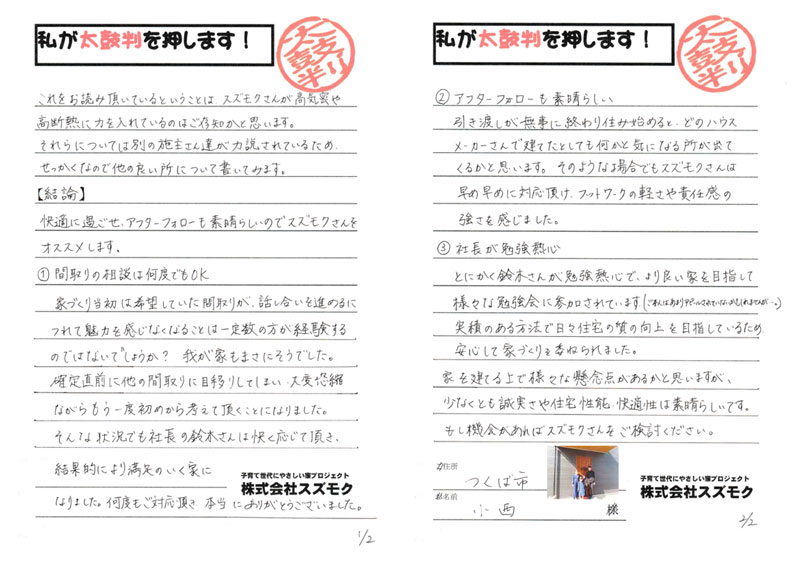 私が太鼓判を押します！
太鼓判
これをお読み頂いているということは、スズモクさんが高気密や
高断熱に力を入れているのはご存知かと思います。
それらについては別の施主さん達が力説されているため、
せっかくなので他の良い所について書いてみます。
【結論】
快適に過ごせ、アフターフォローも素晴らしいのでスズモクさんを
オススメします。
①間取りの相談は何度でもOK
家づくり当初は希望していた間取りが、話し合いを進めるに
つれて魅力を感じなくなることは一定数の方が経験する
のではないでしょうか？ 我が家もまさにそうでした。
確定直前に他の間取りに目移りしてしまい、大変恐縮
ながらもう一度初めから考えて頂くことになりました。
そんな状況でも社長の鈴木さんは快く応じて頂き、
結果的により満足のいく家に
なりました。何度もご対応頂き、本当にありがとうございました。
子育て世代にやさしい家プロジェクト
株式会社スズモク
1/2
私が太鼓判を押します！
太鼓判
②アフターフォローも素晴らしい
引き渡しが無事に終わり住み始めると、どのハウス
メーカーさんで建てたとしても何かと気になる所が出て
くるかと思います。そのような場合でもスズモクさんは
早め早めに対応頂け、フットワークの軽さや責任感の
強さを感じました。
③社長が勉強熱心
とにかく鈴木さんが勉強熱心で、より良い家を目指して
様々な勉強会に参加されています。
実績のある方法で日々住宅の質の向上を目指しているため
安心して家づくりを委ねられました。
家を建てる上で様々な懸念点があるかと思いますが、
少なくとも誠実さや住宅性能、快適性は素晴らしいです。
もし機会があればスズモクさんをご検討ください。
ご住所
つくば市
お名前
小西
様
子育て世代にやさしい家プロジェクト
株式会社スズモク
2/2